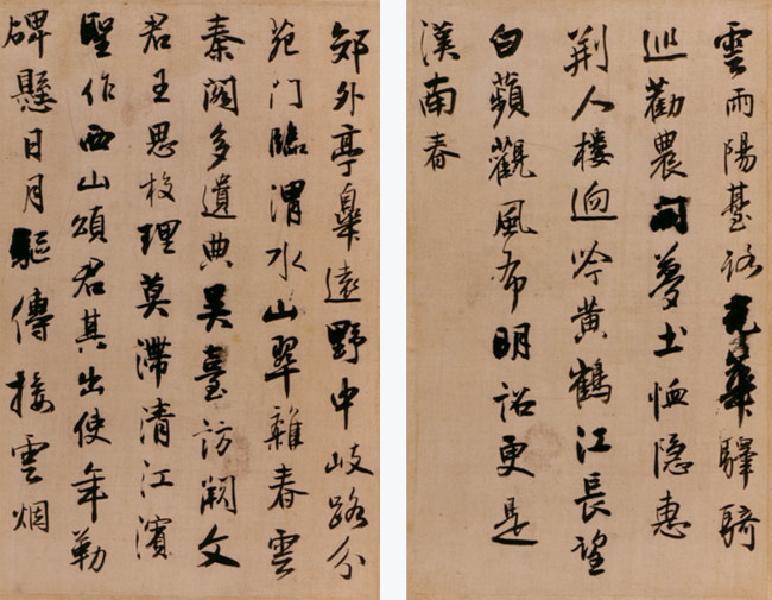 雲雨陽臺路光華驛騎
巡勸農開夢土恤隱惠
荊人樓迥吟黃鶴江長望
白蘋觀風布明詔更是
漢南春
郊外亭皋遠野中岐路分
苑門臨渭水山翠雜春雲
秦閣多遺典吳臺訪闕文
君王思校理莫滯清江濱
聖作西山頌君其出使年勒
碑懸日月驅傳接雲烟